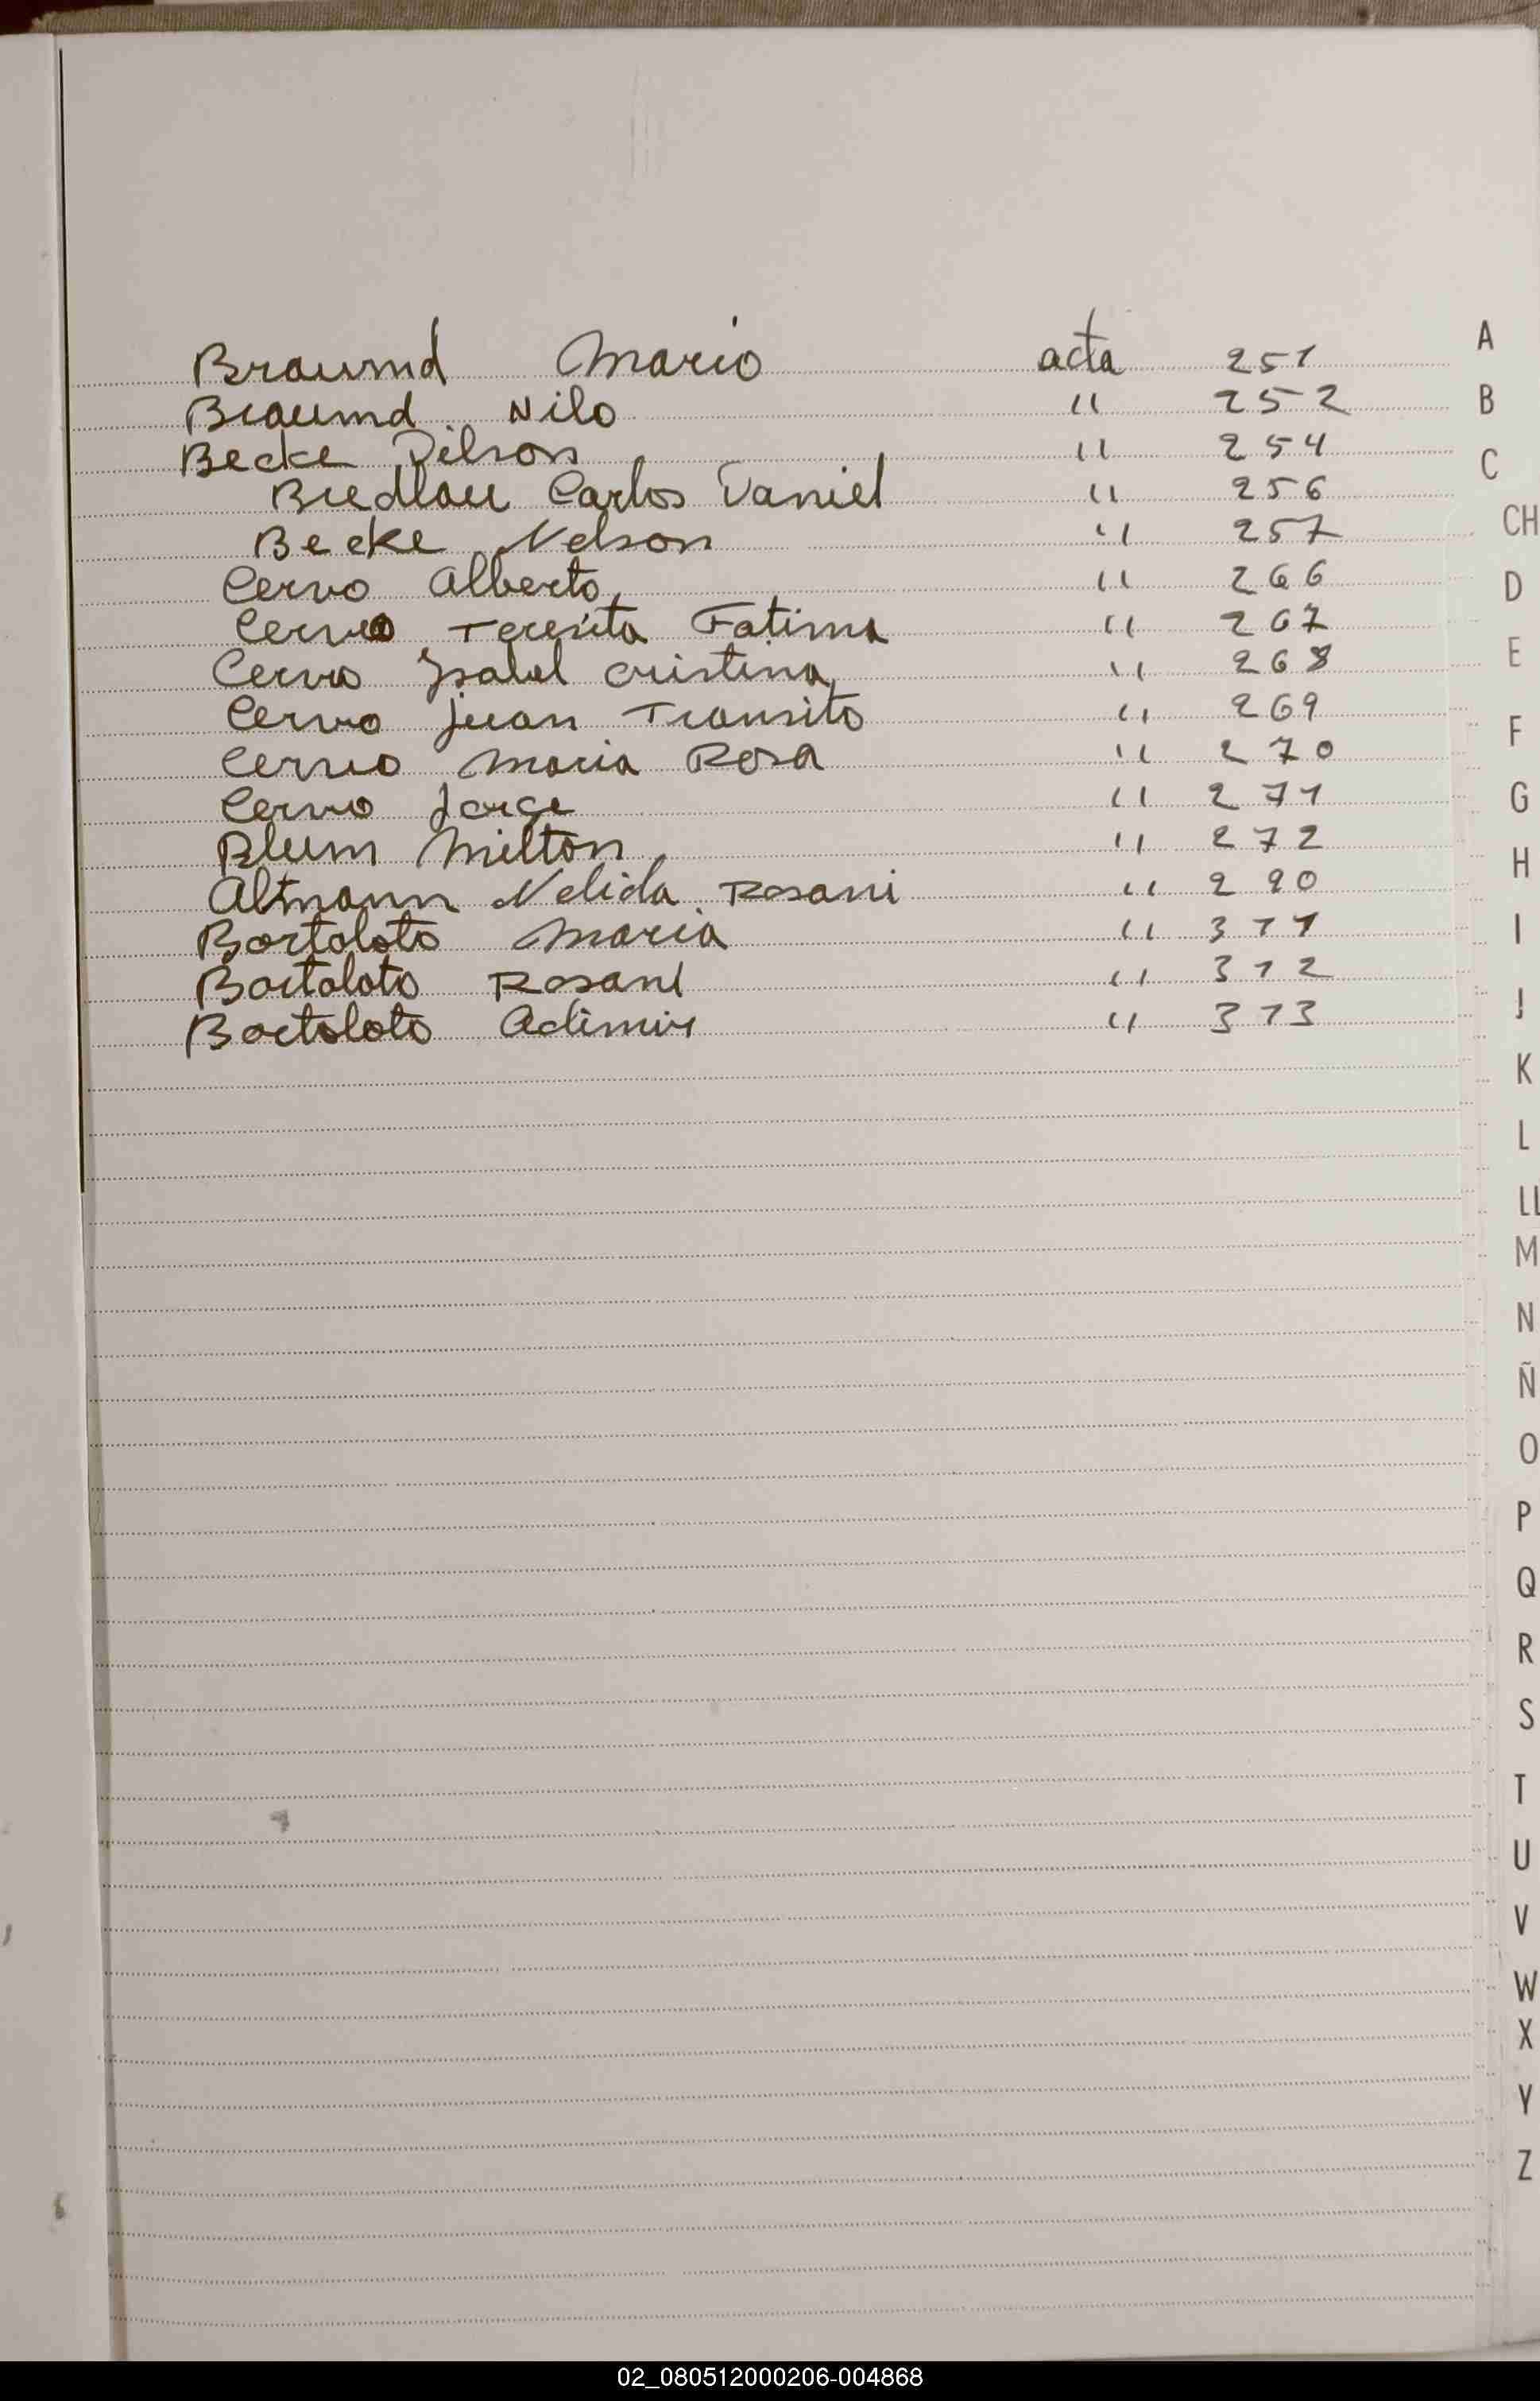 Braumd Mario acta 251
Braumd Nilo " 252
Becke Dilson " 254
Buedlau Carlos Daniel " 256
Becke Nelson " 257
Cervo Alberto " 266
Cervo Teresita Fatima " 267
Cervo Ysabel Cristina " 268
Cervo Juan Transito " 269
Cervo Maria Rosa " 270
Cervo Jorge " 271
Blum Milton " 272
Altmann Nelida Rosani " 290
Bortoloto Maria " 311
Bortoloto Rosani " 312
Bortoloto Adimir " 313
A
B
C
CH
D
E
F
G
H
I
J
K
L
LL
M
N
Ñ
O
P
Q
R
S
T
U
V
W
X
Y
Z
02_080512000206-004868